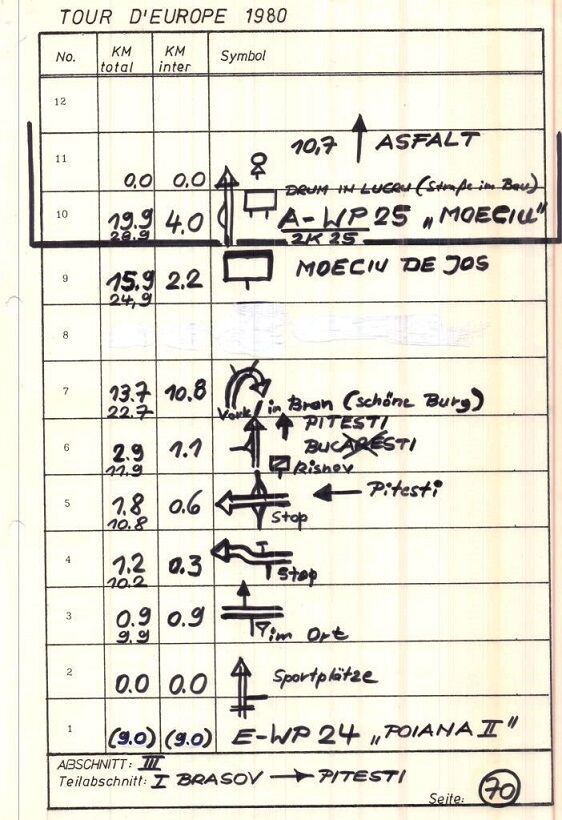 TOUR D'EUROPE 1980
No. KM total KM inter Symbol
12
11 10,7 ASFALT
0.0 0.0
DRUM IN LUCRU (Straße im Bau)
10 19.9 4.0 A-WP 25 „MOECIU"
28.9 ZK 25
9 15.9 2.2 MOECIU DE JOS
24,9
8
7 13.7 10.8 in Bran (schöne Burg)
22.7
PITESTI
6 2.9 1.1 BUCARESTI
11.9 Risnov
5 1.8 0.6 Pitesti
10.8 Stop
4 1.2 0.3 Stop
10.2
3 0.9 0.9 im Ort
9.9
2 0.0 0.0 Sportplätze
1 (9.0) (9.0) E-WP 24 „POIANA II"
ABSCHNITT: III
Teilabschnitt: I BRASOV → PITESTI
Seite: 70